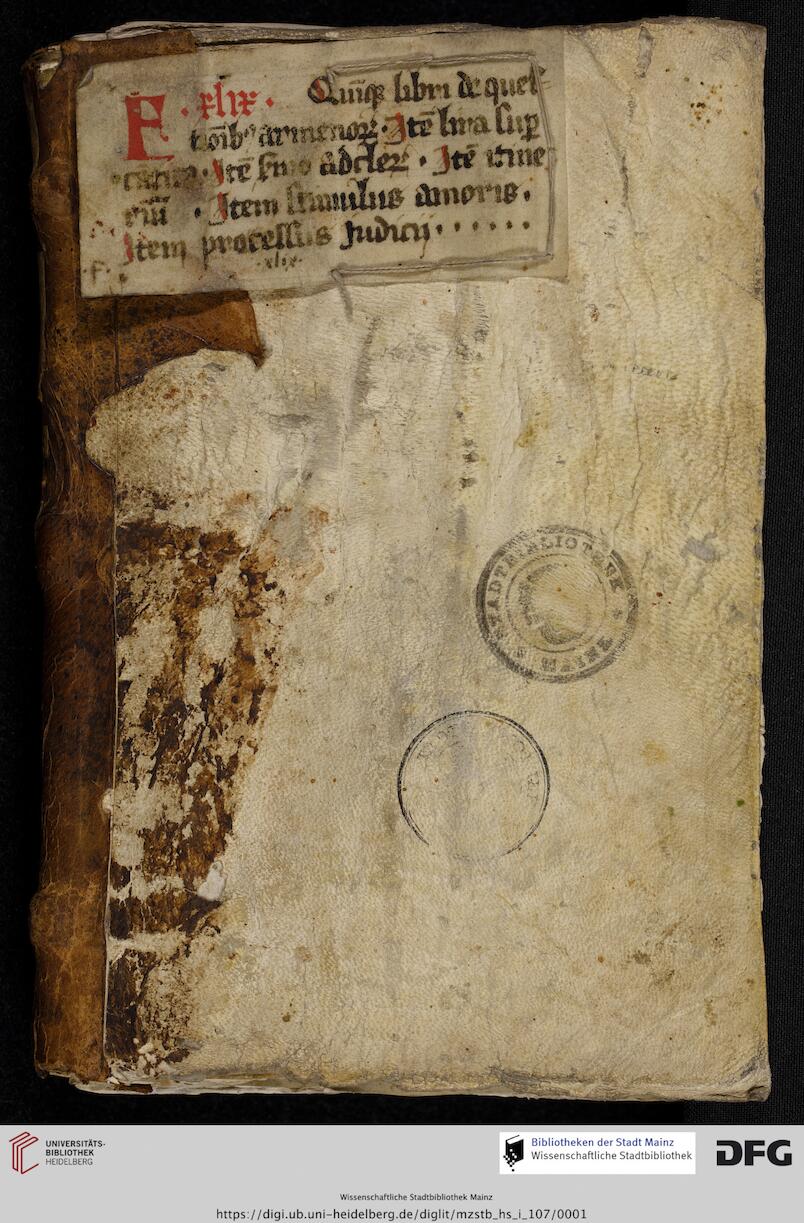 E · xlix · Quinqꝫ libri de ques
tioībꝰ armenoꝝ · Itē lira suꝑ
Itē ad cleꝝ · Itē itine
riū · Item stimulus amoris ·
Item processus Judicij · · · · · ·
· xlix ·
· F ·
STADTBIBLIOTHEK * MAINZ
UNIVERSITÄTS-
BIBLIOTHEK
HEIDELBERG
Bibliotheken der Stadt Mainz
Wissenschaftliche Stadtbibliothek
DFG
Wissenschaftliche Stadtbibliothek Mainz
https://digi.ub.uni-heidelberg.de/diglit/mzstb_hs_i_107/0001